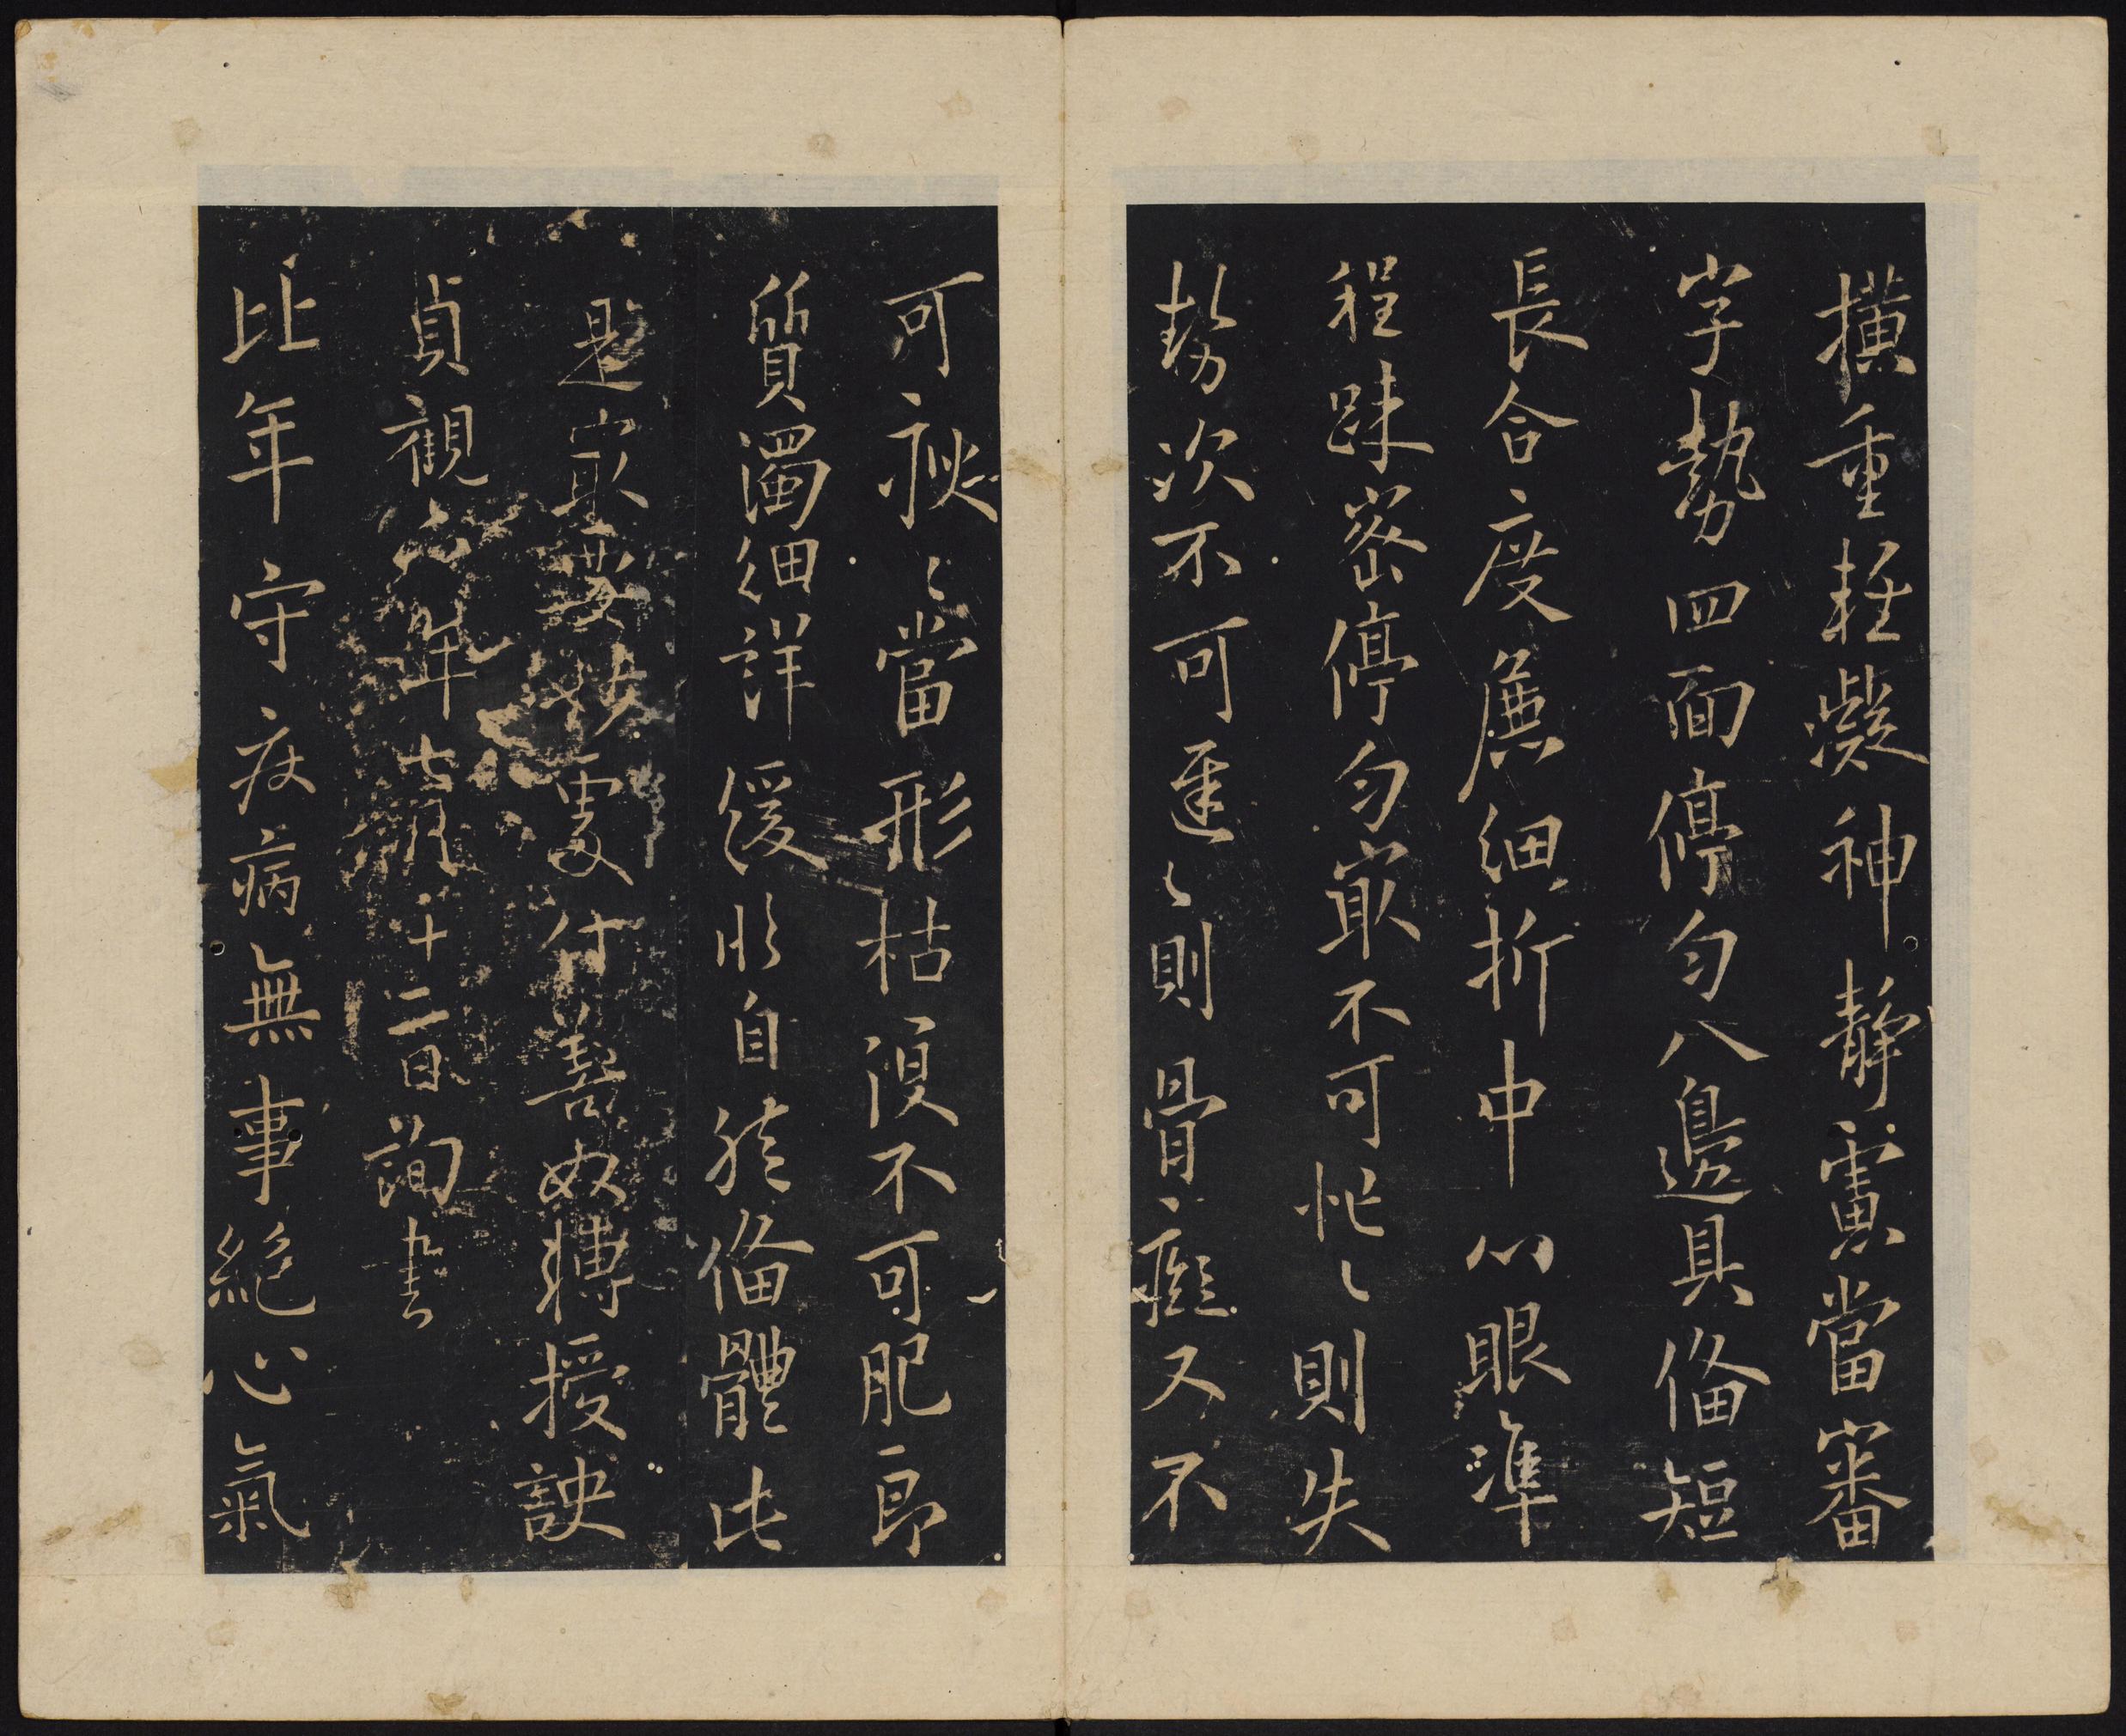 橫重輕凝神靜慮當審
字勢四面停勻八邊具俻短
長合度麁細折中心眼準
程踈密停勻㝡不可忙〻則失
勢次不可遲〻則骨癡又不
可瘦〻當形枯復不可肥即
質濁細詳緩臨自然俻體此
是㝡要妙處付善奴轉授訣
貞觀六年七月十二日詢書
比年守疾病無事絕心氣